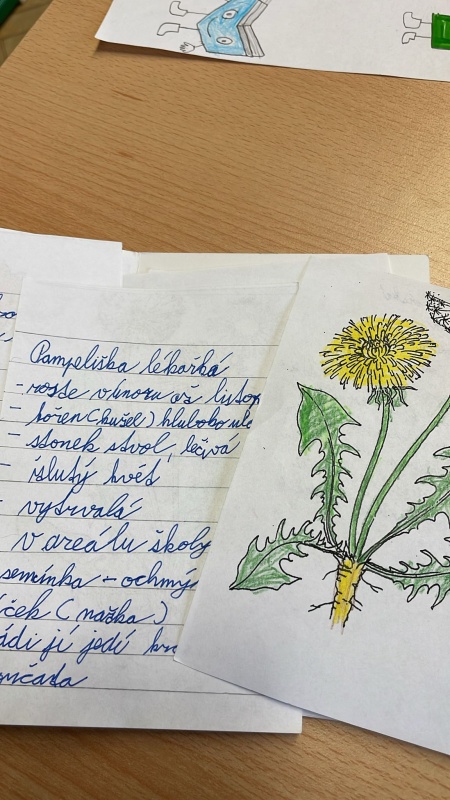 Pampeliška lékařká
- roste v únoru až listop
- kořen (kužel) hluboko ulo
- stonek stvol, léčivá
- žlutý květ
- vytrvalá
v areálu školy
semínka - ochmý
ček (nažka)
ádi jí jedí